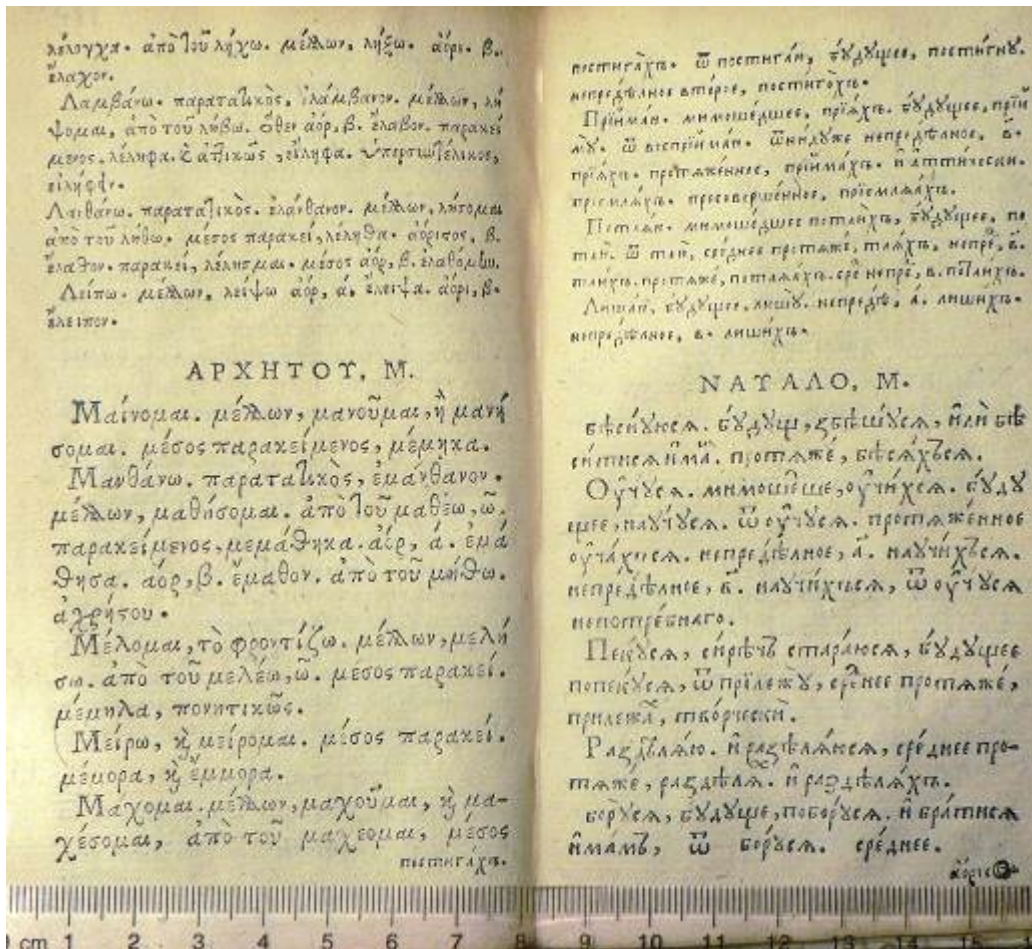 λέλογχα. ἀπὸ τοῦ λήχω. μέλλων, λήξω. ἀόρι. β.
ἔλαχον.
Λαμβάνω. παρατατικὸς, ἐλάμβανον. μέλλων, λή
ψομαι, ἀπὸ τοῦ λήβω. ὅθεν ἀόρ, β. ἔλαβον. παρακεί
μενος. λέληφα. καὶ ἀττικῶς, εἴληφα. ὑπερσυντέλικος,
εἰλήφειν.
Λανθάνω. παρατατικὸς. ἐλάνθανον. μέλλων, λήσομαι
ἀπὸ τοῦ λήθω. μέσος παρακεί, λέληθα. ἀόριστος, β.
ἔλαθον. παρακεί, λέλησμαι. μέσος ἀόρ, β. ἐλαθόμην.
Λείπω. μέλλων, λείψω ἀόρ, ά. ἔλειψα. ἀόρι, β.
ἔλειπον.
ΑΡΧΗ ΤΟΥ, Μ.
Μαίνομαι. μέλλων, μανοῦμαι, ἢ μανή
σομαι. μέσος παρακείμενος, μέμηκα.
Μανθάνω. παρατατικὸς, ἐμάνθανον.
μέλλων, μαθήσομαι. ἀπὸ τοῦ μαθέω, ῶ.
παρακείμενος, μεμάθηκα. ἀόρ, ά. ἐμά
θησα. ἀόρ, β. ἔμαθον. ἀπὸ τοῦ μήθω.
ἀχρήστου.
Μέλομαι, τὸ φροντίζω. μέλλων, μελή
σω. ἀπὸ τοῦ μελέω, ῶ. μέσος παρακεί.
μέμηλα, ποιητικῶς.
Μείρω, καὶ μείρομαι. μέσος παρακεί.
μέμορα, καὶ ἔμμορα.
Μάχομαι. μέλλων, μαχοῦμαι, καὶ μα-
χέσομαι, ἀπὸ τοῦ μαχέομαι, μέσος
постигахъ.
постигахъ. ѿ постигаю, бꙋдꙋщее, постигнꙋ.
непредѣлное второе, постигохъ.
Прїимаю. мимошедшее, прїѧхъ. бꙋдꙋщее, прїи
мꙋ. ѿ воспрїимаю. непредѣлное, в.
прїѧхъ. протѧженное, прїимахъ. и аттически.
пресовершенное,
Потаю. мимошедшее потаихъ, бꙋдꙋщее, по
таю. ѿ таю, среднее протѧже, таѧхъ, непре, в.
таихъ. протѧже, потаѧхъ. непре, в. потаихъ.
Лишаю, бꙋдꙋщее, лишꙋ. непредѣ, а. лишихъ.
непредѣлное, в. лишихъ.
НАЧАЛО, М.
бѣснꙋюсѧ. бꙋдꙋщ, збѣшꙋсѧ, или бѣ
ситисѧ има. протѧже, бѣсѧхъсѧ.
Оучꙋсѧ. мимошеше, оучихсѧ. бꙋдꙋ
щее, наꙋчꙋсѧ. ѿ оучꙋсѧ. протѧженное
оучахсѧ. непредѣлное, а. наꙋчихъсѧ.
непредѣлное, в. наꙋчихъсѧ, ѿ оучꙋсѧ
непотребнаго.
Пекꙋсѧ, сирѣчь стараюсѧ, бꙋдꙋщее
попекꙋсѧ, ѿ прїлежꙋ, сренее протѧже,
прилежа, творчески.
Раздѣлѧю. и раздѣлѧюсѧ, среднее про-
тѧже, раздѣлѧ. и раздѣлѧхъ.
борꙋсѧ, бꙋдꙋще, поборꙋсѧ. и братисѧ
имамъ, ѿ борꙋсѧ. среднее.
cm 1 2 3 4 5 6 7 8 9 10 11 12 13 14 15